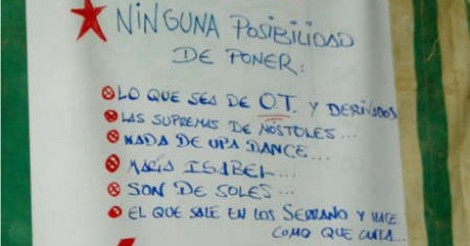 NINGUNA POSIBILIDAD
DE PONER:
LO QUE SEA DE O.T. Y DERIVADOS
LAS SUPREMAS DE MÓSTOLES...
NADA DE UPA DANCE...
MARÍA ISABEL...
SON DE SOLES...
EL QUE SALE EN LOS SERRANO Y HACE
COMO QUE CANTA...